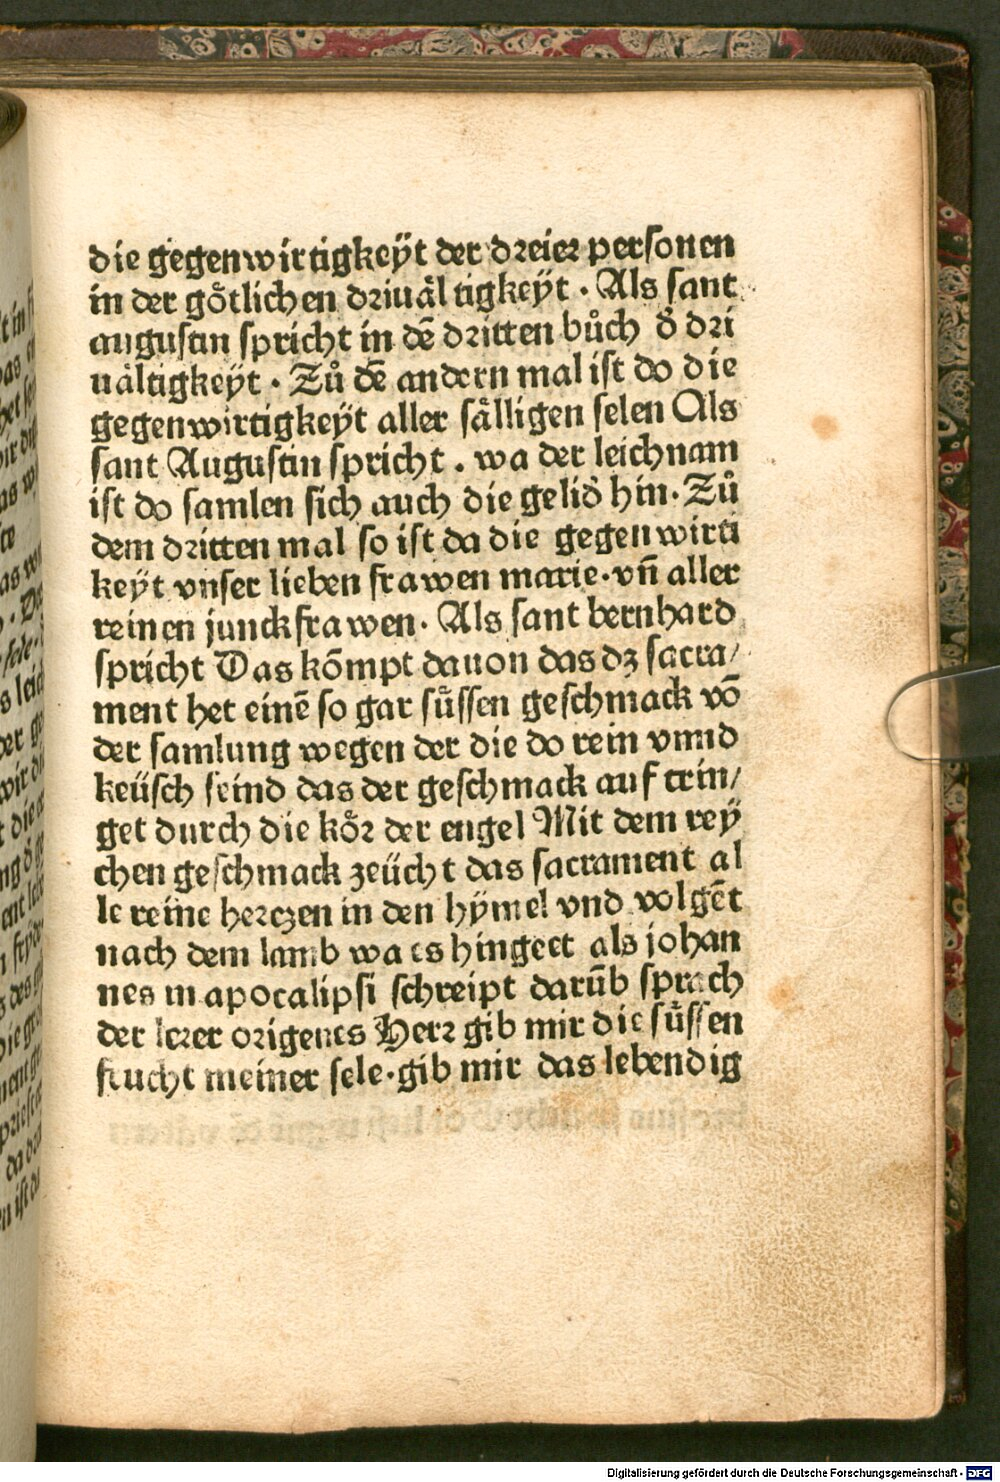 die gegenwirtigkeÿt der dreier personen
in der gôtlichen driuâltigkeÿt · Als sant
augustin spricht in dē dritten bůch d̕ dri
uâltigkeÿt · Zů dē andern mal ist do die
gegenwirtigkeÿt aller sâlligen selen Als
sant Augustin spricht . wa der leichnam
ist do samlen sich auch die gelid̕ hin · Zů
dem dritten mal so ist da die gegenwirti
keÿt vnser lieben frawen marie · vn̄ aller
reinen junckfrawen · Als sant bernhard
spricht Das kōmpt dauon das dz sacra/
ment het einē so gar sůssen geschmack vō
der samlung wegen der die do rein vnnd
keüsch seind das der geschmack auf trin/
get durch die kôr der engel Mit dem reÿ
chen geschmack zeücht das sacrament al
le reine herczen in den hÿmel vnd volgēt
nach dem lamb wa es hingeet als johan
nes in apocalipsi schreipt darūb sprach
der lerer origenes Herr gib mir die sůssen
frucht meiner sele · gib mir das lebendig
Digitalisierung gefördert durch die Deutsche Forschungsgemeinschaft - DFG